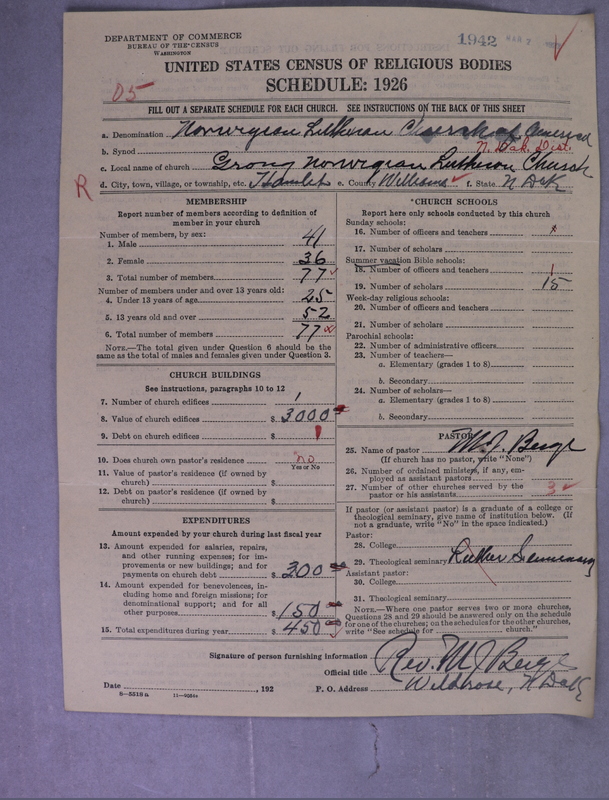 DEPARTMENT OF COMMERCE
BUREAU OF THE CENSUS
WASHINGTON
1942 MAR 7
UNITED STATES CENSUS OF RELIGIOUS BODIES
SCHEDULE: 1926
05
FILL OUT A SEPARATE SCHEDULE FOR EACH CHURCH. SEE INSTRUCTIONS ON THE BACK OF THIS SHEET
a. Denomination Norwegian Lutheran Church of America
b. Synod N. Dak. Dist.
c. Local name of church Grong Norwegian Lutheran Church
R
d. City, town, village, or township, etc. Hamlet e. County Williams f. State N Dak
MEMBERSHIP
Report number of members according to definition of
member in your church
Number of members, by sex:
1. Male 41
2. Female 36
3. Total number of members 77
Number of members under and over 13 years old:
4. Under 13 years of age 25
5. 13 years old and over 52
6. Total number of members 77
NOTE.—The total given under Question 6 should be the
same as the total of males and females given under Question 3.
CHURCH BUILDINGS
See instructions, paragraphs 10 to 12
7. Number of church edifices 1
8. Value of church edifices $ 3000
9. Debt on church edifices $
10. Does church own pastor's residence? no
Yes or No
11. Value of pastor's residence (if owned by
church) $
12. Debt on pastor's residence (if owned by
church) $
EXPENDITURES
Amount expended by your church during last fiscal year
13. Amount expended for salaries, repairs,
and other running expenses; for im-
provements or new buildings; and for
payments on church debt $ 300
14. Amount expended for benevolences, in-
cluding home and foreign missions; for
denominational support; and for all
other purposes $ 150
15. Total expenditures during year $ 450
*CHURCH SCHOOLS
Report here only schools conducted by this church
Sunday schools:
16. Number of officers and teachers
17. Number of scholars
Summer vacation Bible schools:
18. Number of officers and teachers 1
19. Number of scholars 15
Week-day religious schools:
20. Number of officers and teachers
21. Number of scholars
Parochial schools:
22. Number of administrative officers
23. Number of teachers—
a. Elementary (grades 1 to 8)
b. Secondary
24. Number of scholars—
a. Elementary (grades 1 to 8)
b. Secondary
PASTOR
25. Name of pastor M. J. Berge
(If church has no pastor, write "None")
26. Number of ordained ministers, if any, em-
ployed as assistant pastors
27. Number of other churches served by the
pastor or his assistants 3
If pastor (or assistant pastor) is a graduate of a college or
theological seminary, give name of institution below. (If
not a graduate, write "No" in the space indicated.)
Pastor:
28. College
29. Theological seminary Luther Seminary
Assistant pastor:
30. College
31. Theological seminary
NOTE.—Where one pastor serves two or more churches,
Questions 28 and 29 should be answered only on the schedule
for one of the churches; on the schedules for the other churches,
write "See schedule for church."
Signature of person furnishing information Rev. M J Berge
Official title
Date , 192 P. O. Address Wildrose, N Dak
8—5518 a